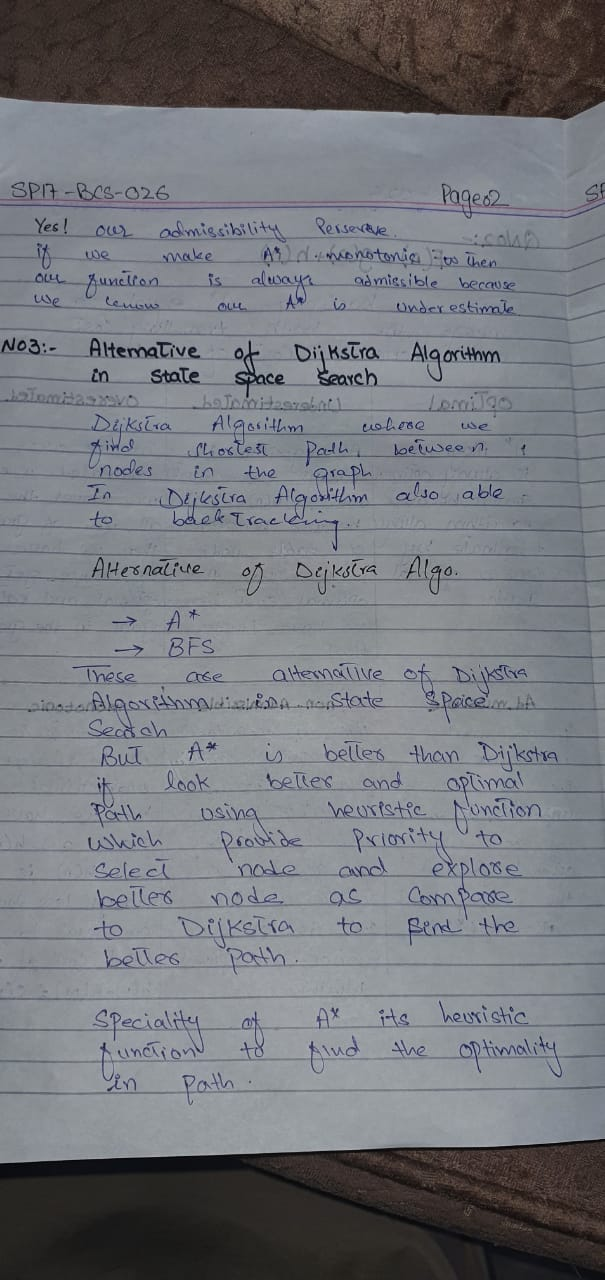 SP17-BCS-026 Page02
Yes! our admissibility Perserve.
if we make A* monotonic too then
our function is always admissible because
We know our A* is Underestimate
NO3:- Alternative of Dijkstra Algorithm
in State Space Search
Dijkstra Algorithm where we
find Shortest Path between
nodes in the graph.
In Dijkstra Algorithm also able
to back Tracking.
Alternative of Dijkstra Algo.
→ A*
→ BFS
These are alternative of Dijkstra
Algorithm in State Space
Search
But A* is better than Dijkstra
it look better and optimal
Path using heuristic function
which provide Priority to
Select node and explore
better node as Compare
to Dijkstra to find the
better Path.
Speciality of A* its heuristic
function to find the optimality
in Path.